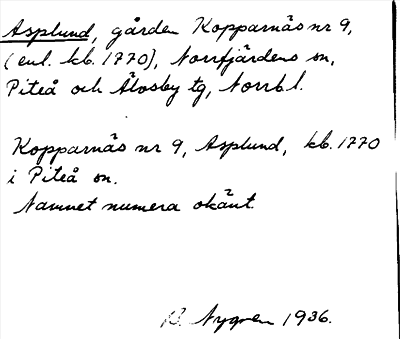 Asplund, gården Kopparnäs nr 9,
(enl. kb. 1770), Norrfjärdens sn,
Piteå och Älvsby tg, Norrb. l.
Kopparnäs nr 9, Asplund, kb. 1770
i Piteå sn.
Namnet numera okänt.
Nygren 1936.